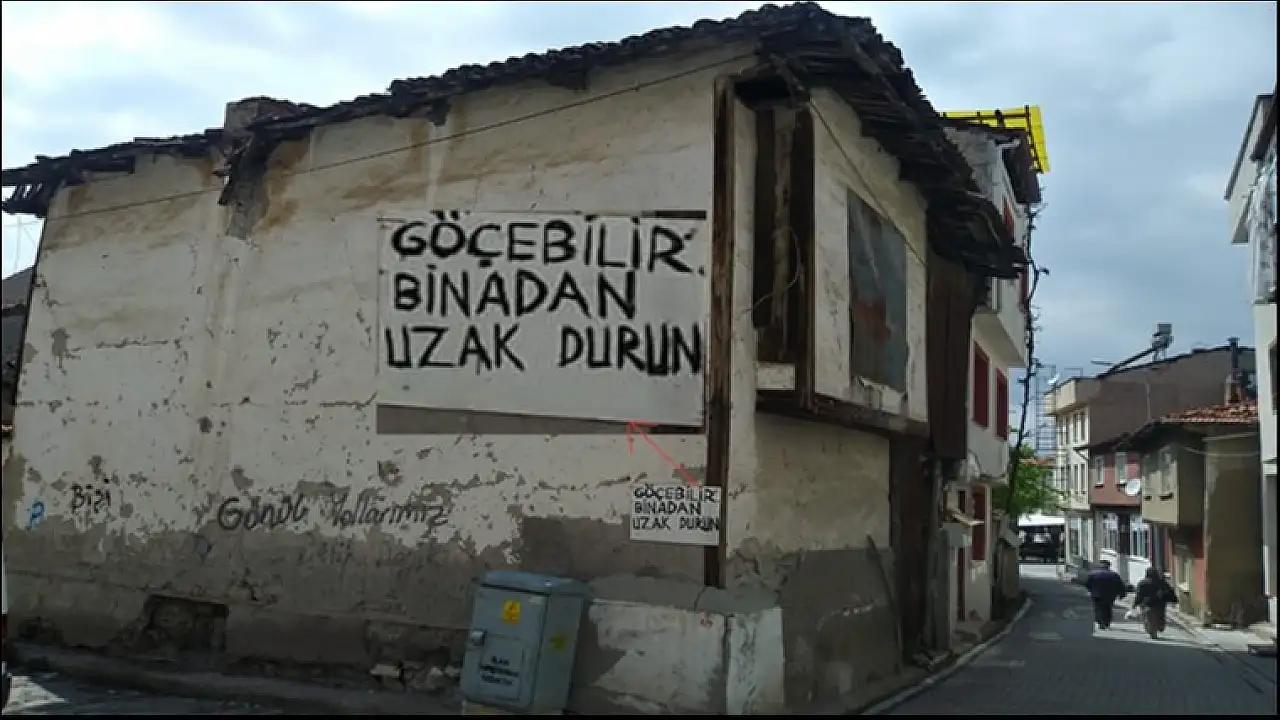 GÖÇEBİLİR.
BİNADAN
UZAK DURUN
GÖÇEBİLİR.
BİNADAN
UZAK DURUN
BİZİ
GÖNÜL Yollarımız